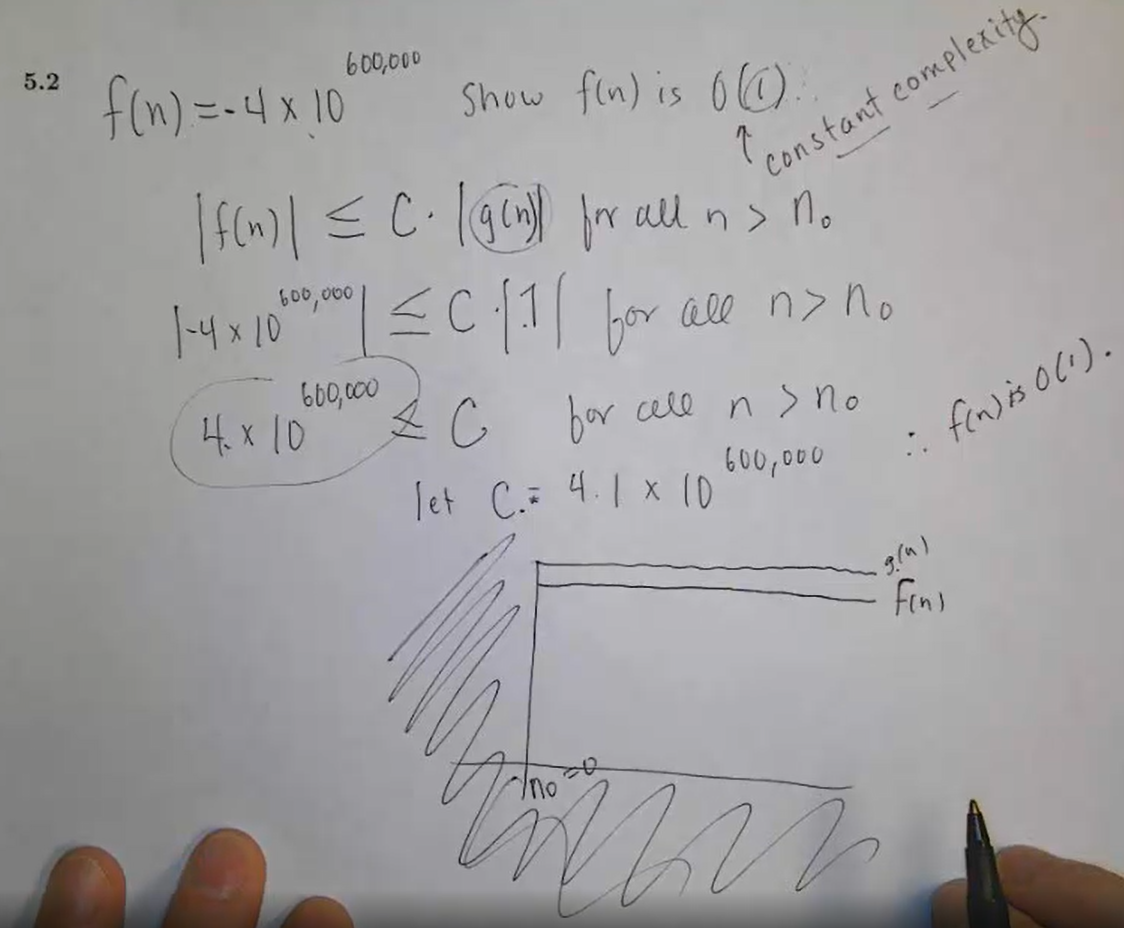 5.2 f(n) = -4 × 10^600,000 Show f(n) is O(1).
↑ constant complexity.
|f(n)| ≤ C · |g(n)| for all n > n₀
|-4 × 10^600,000| ≤ C · |1| for all n > n₀
4 × 10^600,000 ≤ C for all n > n₀
∴ f(n) is O(1).
let C = 4.1 × 10^600,000
g(n)
f(n)
n₀ = 0